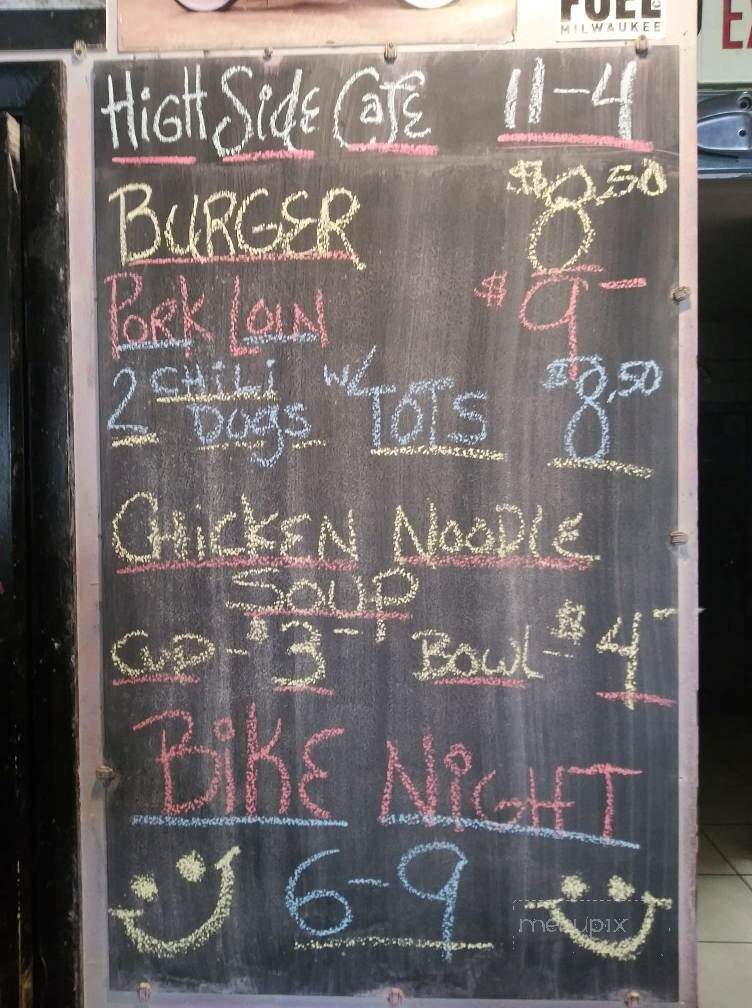 FUEL
MILWAUKEE
HiGH SidE CafE 11-4
BURGER $8.50
PORK LOIN $9-
2 CHiLi DOgS w/ TOTS $8.50
CHiCKEN NOODLE
SOUP
CUP - $3- BOWL - $4-
BiKE NiGHT
6-9
menupix